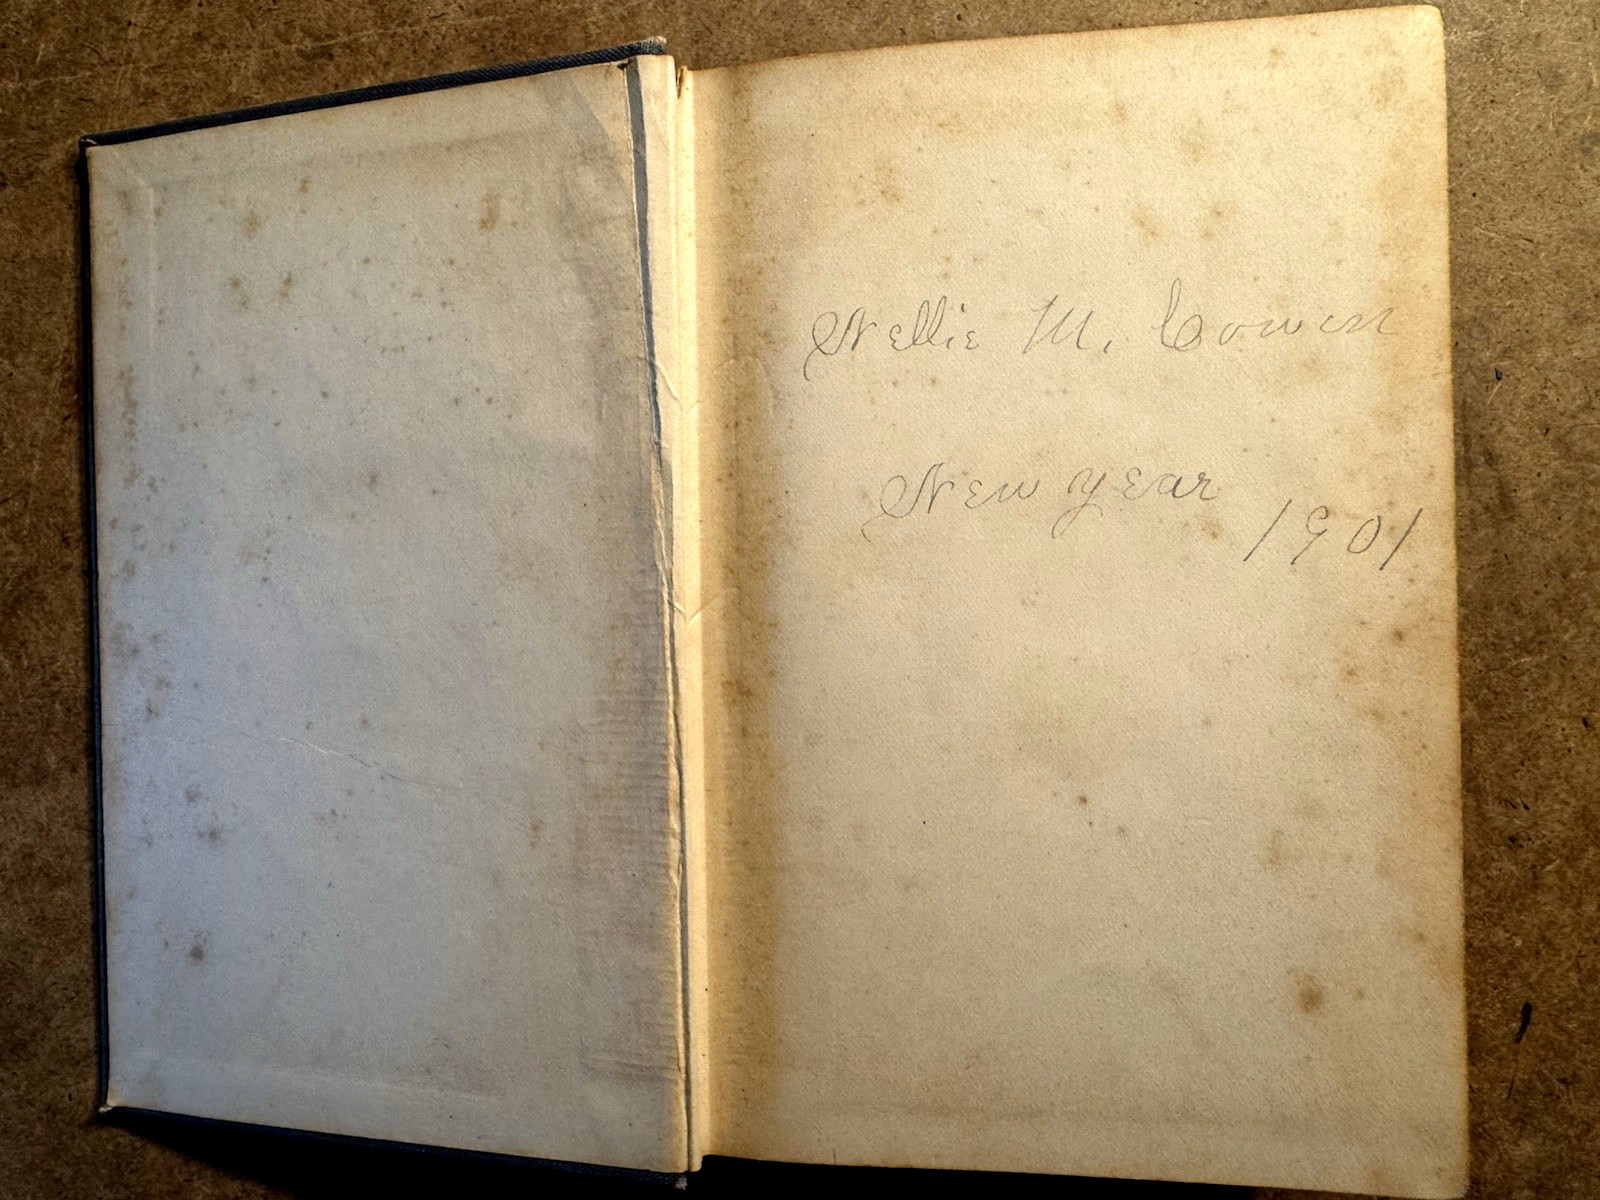 Nellie M. Cowen
New Year
1901